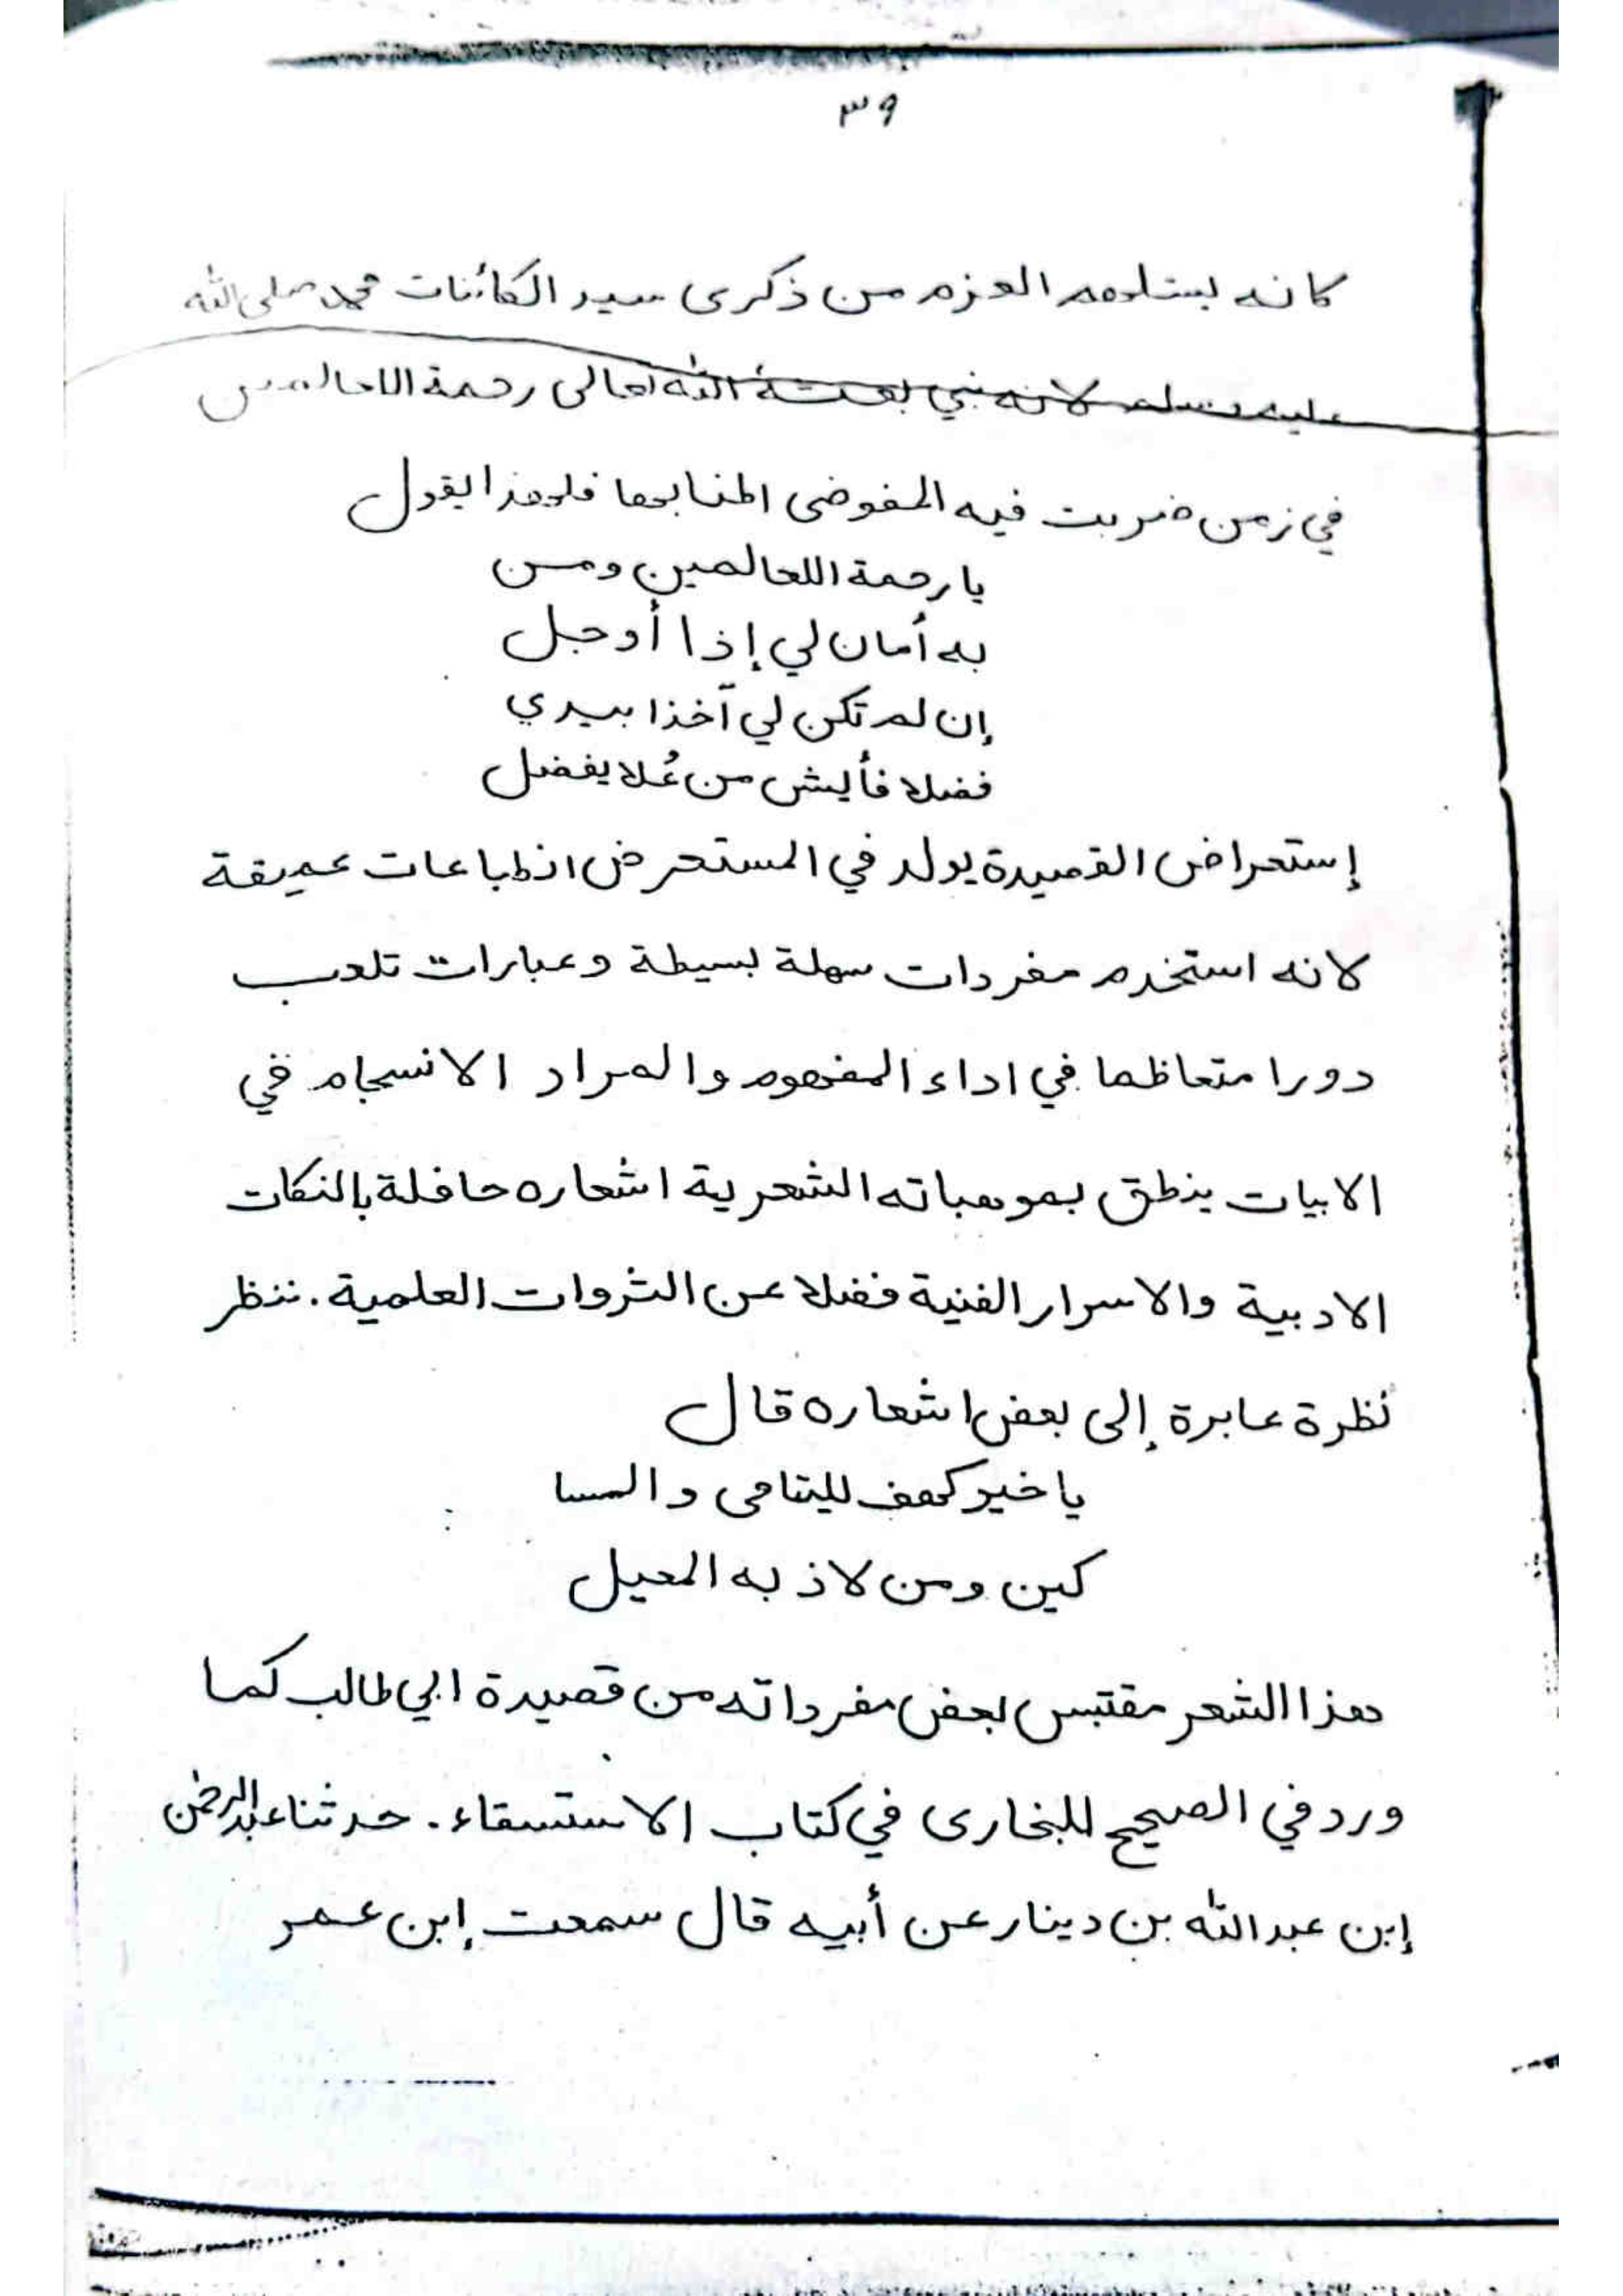 ٣٩
كانه يستلهم العزم من ذكرى سيد الكائنات محمد صلى الله
عليه وسلم لانه نبي بعثه الله تعالى رحمة اللعالمين
في زمن ضربت فيه الفوضى اطنابها فلهذا يقول
يا رحمة اللعالمين ومن
به أمان لي إذا أوجل
إن لم تكن لي آخذا بيدي
فضلا فأيش من عُلا يفضل
إستعراض القصيدة يولد في المستعرض انطباعات عميقة
لانه استخدم مفردات سهلة بسيطة وعبارات تلعب
دورا متعاظما في اداء المفهوم والمراد الانسجام في
الابيات ينطق بموهباته الشعرية اشعاره حافلة بالنكات
الادبية والاسرار الفنية فضلا عن الثروات العلمية. ننظر
نظرة عابرة إلى بعض اشعاره قال
يا خير كهف لليتامى والمسا
كين ومن لاذ به المعيل
هذا الشعر مقتبس بعض مفرداته من قصيدة ابي طالب كما
ورد في الصحيح للبخارى في كتاب الاستسقاء. حدثنا عبد الرحمن
إبن عبد الله بن دينار عن أبيه قال سمعت إبن عمر